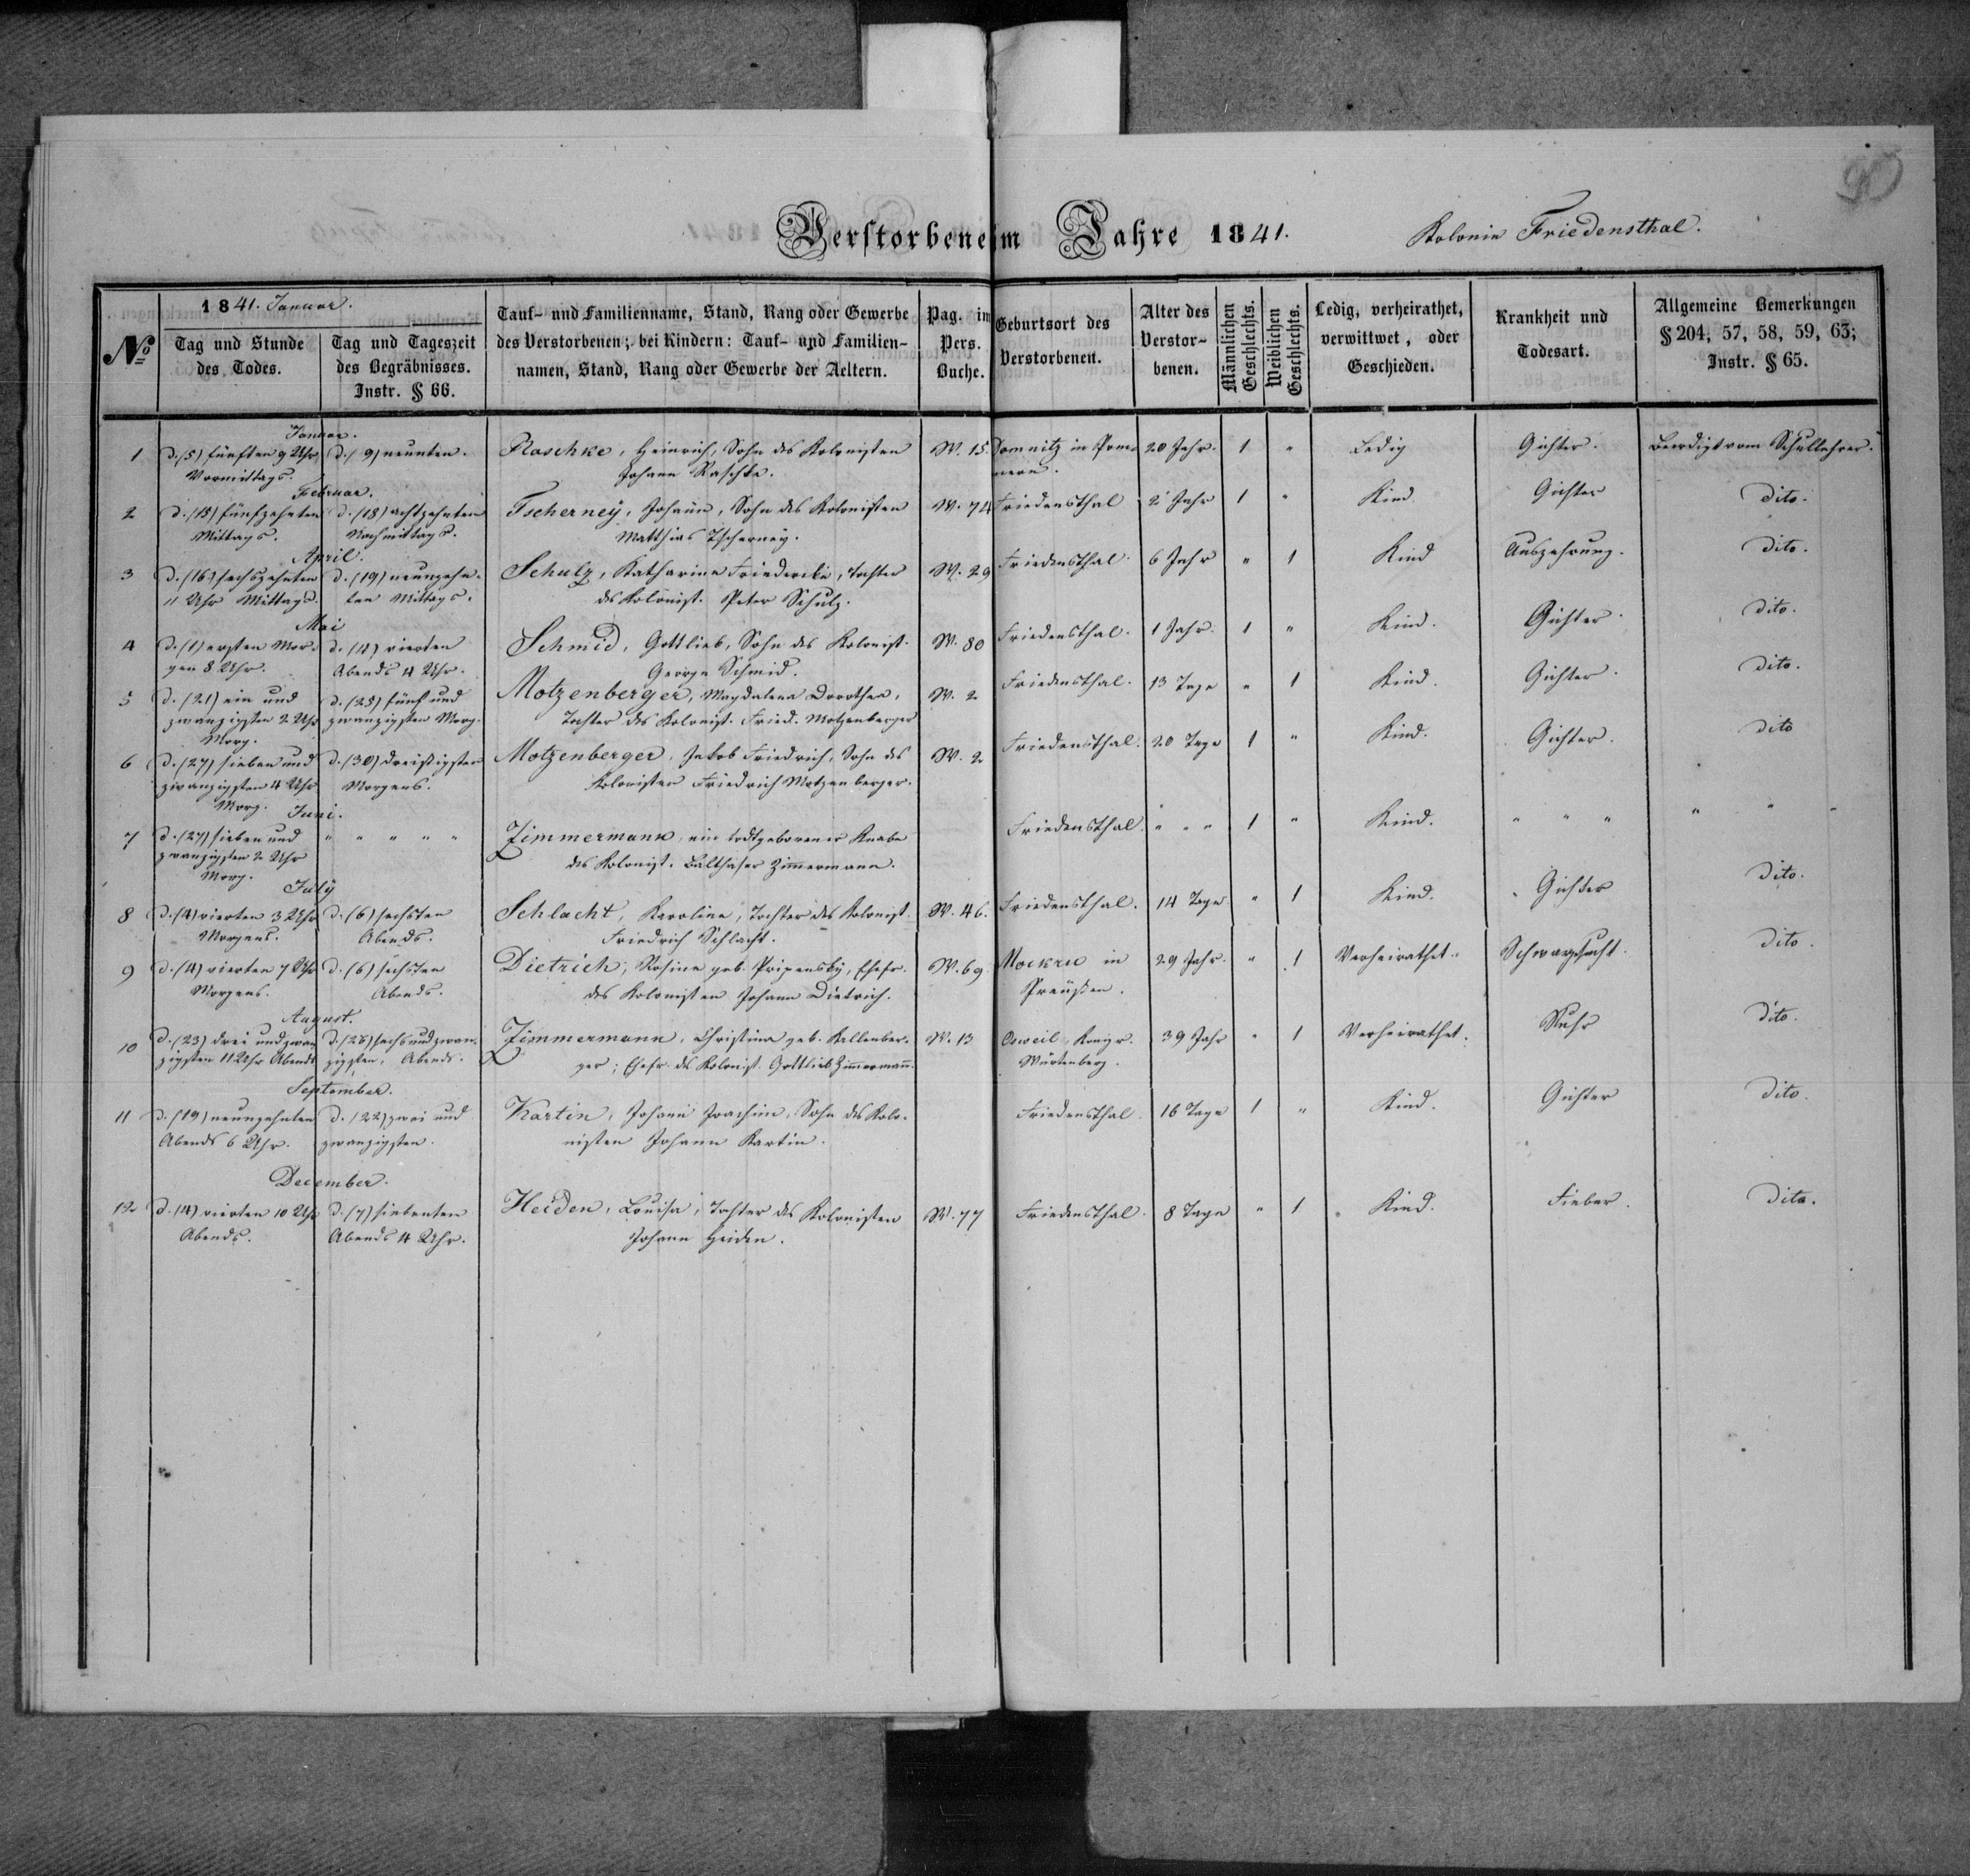 90
Verstorbene im Jahre 1841. Kolonie Friedensthal.
No
1841. Januar.
Tag und Stunde
des Todes.
Tag und Tageszeit
des Begräbnisses.
Instr. § 66.
Tauf- und Familienname, Stand, Rang oder Gewerbe
des Verstorbenen; bei Kindern: Tauf- und Familien-
namen, Stand, Rang oder Gewerbe der Aeltern.
Pag. im
Pers.
Buche.
Geburtsort des
Verstorbenen.
Alter des
Verstor-
benen.
Männlichen
Geschlechts.
Weiblichen
Geschlechts.
Ledig, verheirathet,
verwittwet, oder
Geschieden.
Krankheit und
Todesart.
Allgemeine Bemerkungen
§ 204, 57, 58, 59, 63;
Instr. § 65.
Januar.
1 d. (5) fünften 9 Uhr d. (9) neunten. Raschke, Heinrich, Sohn des Kolonisten W. 15. Domnitz in Pom- 20 Jahr. 1 " Ledig Gichter. Beerdigt vom Schullehrer.
Vormittags. Johann Raschke. mern.
Februar.
2 d. (15) fünfzehnten d. (18) achtzehnten Tscherney, Johann, Sohn des Kolonisten W. 74 Friedensthal 2 Jahr 1 " Kind. Gichter dito.
Mittags. Nachmittags. Matthias Tscherney.
April.
3 d. (16) sechszehnten d. (19) neunzehn- Schulz, Katharina Friedericke, Tochter W. 29 Friedensthal. 6 Jahr " 1 Kind Auszehrung. dito.
11 Uhr Mittags. ten Mittags. des Kolonist. Peter Schulz.
Mai
4 d. (1) ersten Mor- d. (4) vierten Schmid, Gottlieb, Sohn des Kolonist. W. 80 Friedensthal. 1 Jahr. 1 " Kind. Gichter. dito.
gen 8 Uhr. Abends 4 Uhr. George Schmid.
5 d. (21) ein und d. (25) fünf und Motzenberger, Magdalena Dorothea, W. 2 Friedensthal. 13 Tage " 1 Kind. Gichter. dito.
zwanzigsten 2 Uhr zwanzigsten Morg. Tochter des Kolonist. Fried. Motzenberger
Morg.
6 d. (27) sieben und d. (30) dreißigsten Motzenberger, Jakob Friedrich, Sohn des W. 2 Friedensthal. 20 Tage 1 " Kind. Gichter. dito
zwanzigsten 4 Uhr Morgens. Kolonisten Friedrich Motzenberger.
Morg. Juni.
7 d. (27) sieben und " " " " " Zimmermann, ein todtgeborener Knabe Friedensthal. " " " 1 " Kind. " " " " " "
zwanzigsten 2 Uhr des Kolonist. Balthaser Zimermann.
Morg.
July
8 d. (4) vierten 3 Uhr d. (6) sechsten Schlacht, Karolina, Tochter des Kolonist. W. 46. Friedensthal. 14 Tage " 1 Kind. Gichter dito.
Morgens. Abends. Friedrich Schlacht.
9 d. (4) vierten 7 Uhr d. (6) sechsten Dietrich, Rosine geb. Pripensky, Ehefr. W. 69. Mockrie in 29 Jahr. " 1 Verheirathet. Schwarzsucht. dito.
Morgens. Abends. des Kolonisten Johann Dietrich. Preußen.
August.
10 d. (23) drei und zwan d. (26) sechs und zwan- Zimmermann, Christina geb. Kellenber- W. 13 Osweil, Königr. 39 Jahr " 1 Verheirathet. Ruhr dito.
zigsten 11 Uhr Abends zigsten, Abends. ger; Ehefr. des Kolonist. Gottlieb Zimmermann. Würtenberg.
September.
11 d. (19) neunzehnten d. (22) zwei und Kartin, Johann Joachim, Sohn des Kolo- Friedensthal. 16 Tage 1 " Kind. Gichter dito.
Abends 6 Uhr. zwanzigsten. nisten Johann Kartin.
December.
12 d. (4) vierten 10 Uhr d. (7) siebenten Heiden, Louisa, Tochter des Kolonisten W. 77 Friedensthal. 8 Tage " 1 Kind. Fieber. dito.
Abends. Abends 4 Uhr. Johann Heiden.